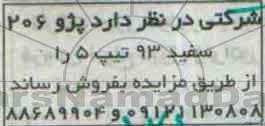 شرکتی در نظر دارد پژو ۲۰۶
سفید ۹۳ تیپ ۵ را
از طریق مزایده بفروش رساند
۰۹۱۲۱۱۳۰۸۰۸ و ۸۸۶۸۹۹۰۴